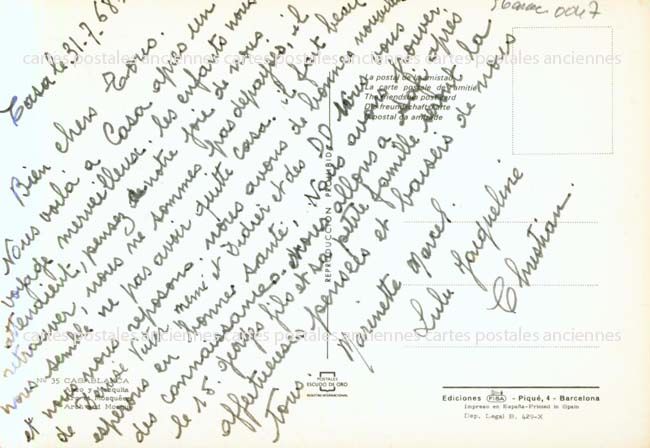 Casa le 31.7.68.
Bien chers Tous.
Nous voilà à Casa après un
voyage merveilleux. les enfants nous
attendaient, pensez notre joie de nous
retrouver, nous ne sommes pas dépaysés, il
nous semble ne pas avoir quitté Casa. il fait beau
et nous nous reposons. nous avons de bonnes nouvelles
de Louise Vuly mémé et Didier et des DD tous
espérons en bonne santé. Nous avons trouver
des connaissances nous allons à après
le 15. Jacques fils et sa petite famille vont la
affectueuses pensées et baisers de nous
Tous
Marinette Marcel.
Lulu Jacqueline
Christian.
0047
La postal de la mistad
La carte postale de l'amitié
The friendship postcard
Die freundschaftskarte
O postal da amizade
REPRODUCCION PROHIBIDA
Nº 35 CASABLANCA
Arco y Mezquita
Arc et Mosquée
Arch and Mosque
POSTALES
ESCUDO DE ORO
Ediciones FISA - Piqué, 4 - Barcelona
Impreso en España-Printed in Spain
Dep. Legal B. 429-X
cartes postales anciennes cartes postales anciennes cartes postales anciennes
cartes postales anciennes cartes postales anciennes cartes postales anciennes